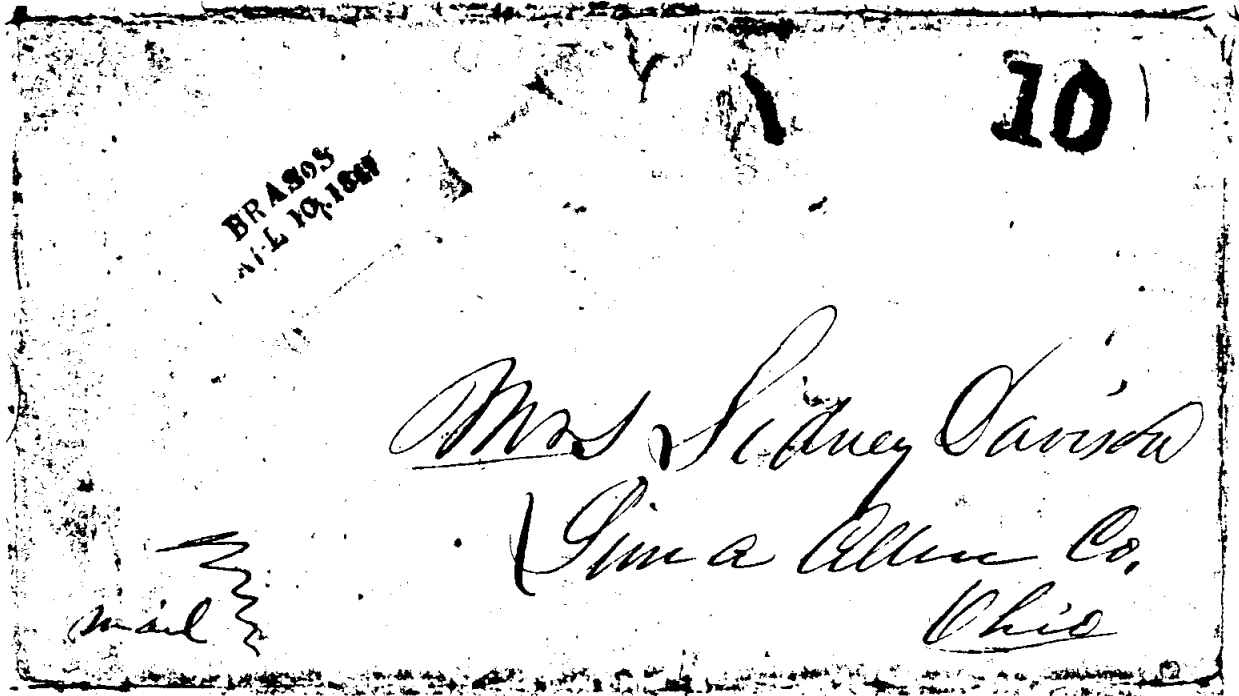 10
BRASOS
10, 1847
Mrs Sidney Davison
Lima Allen Co.
Ohio
mail